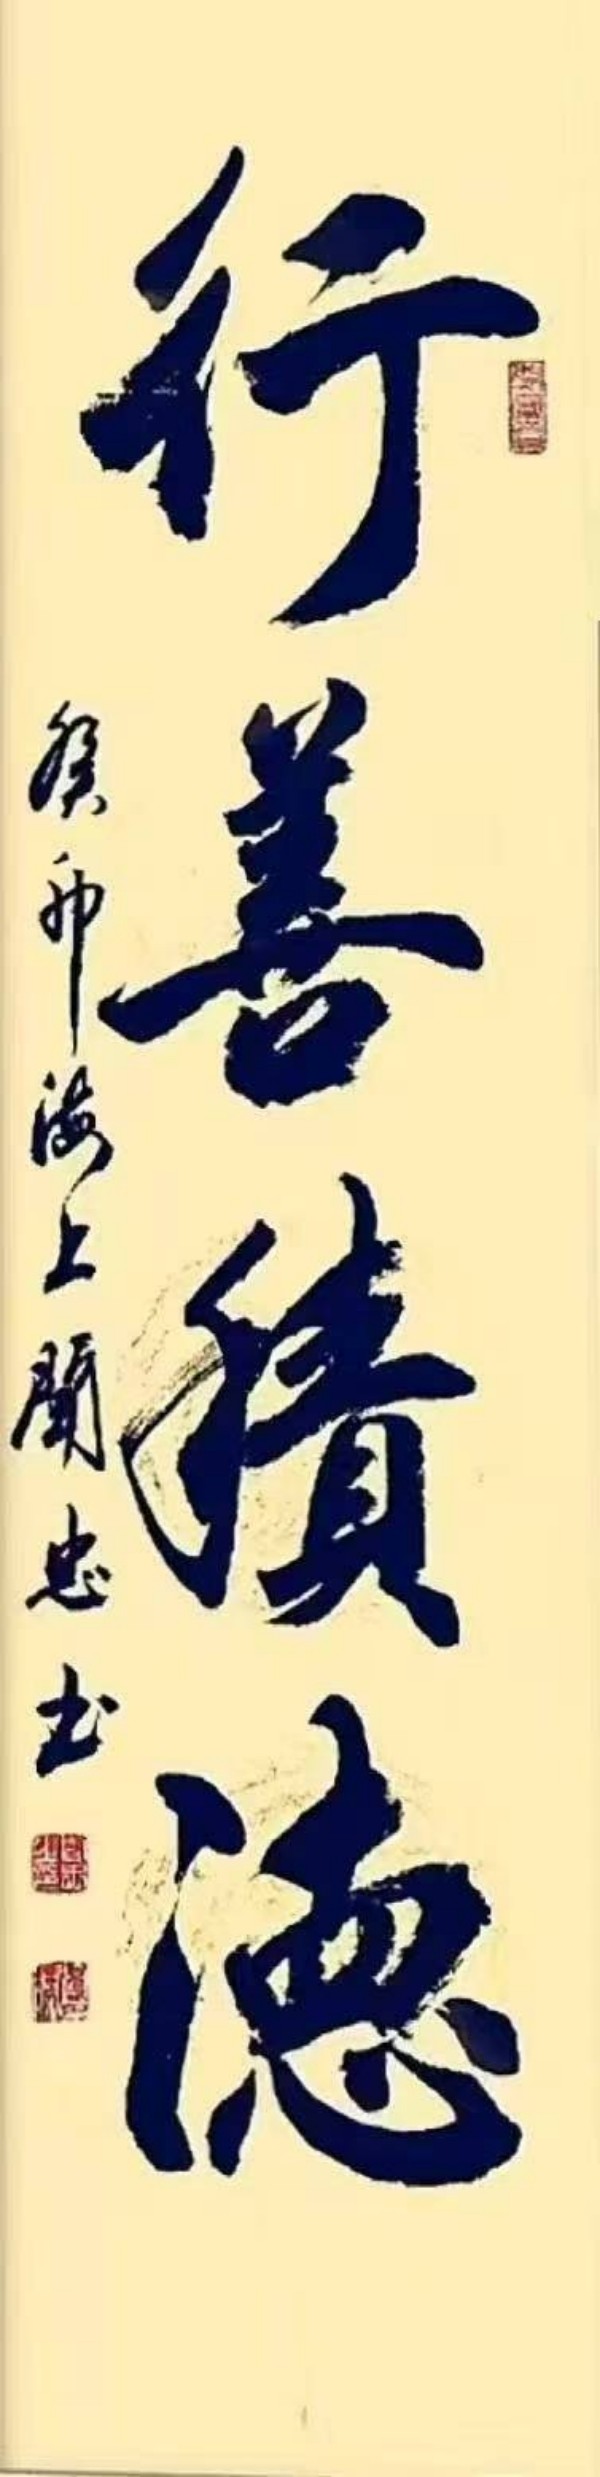 行善積德
癸卯海上蘭忠书